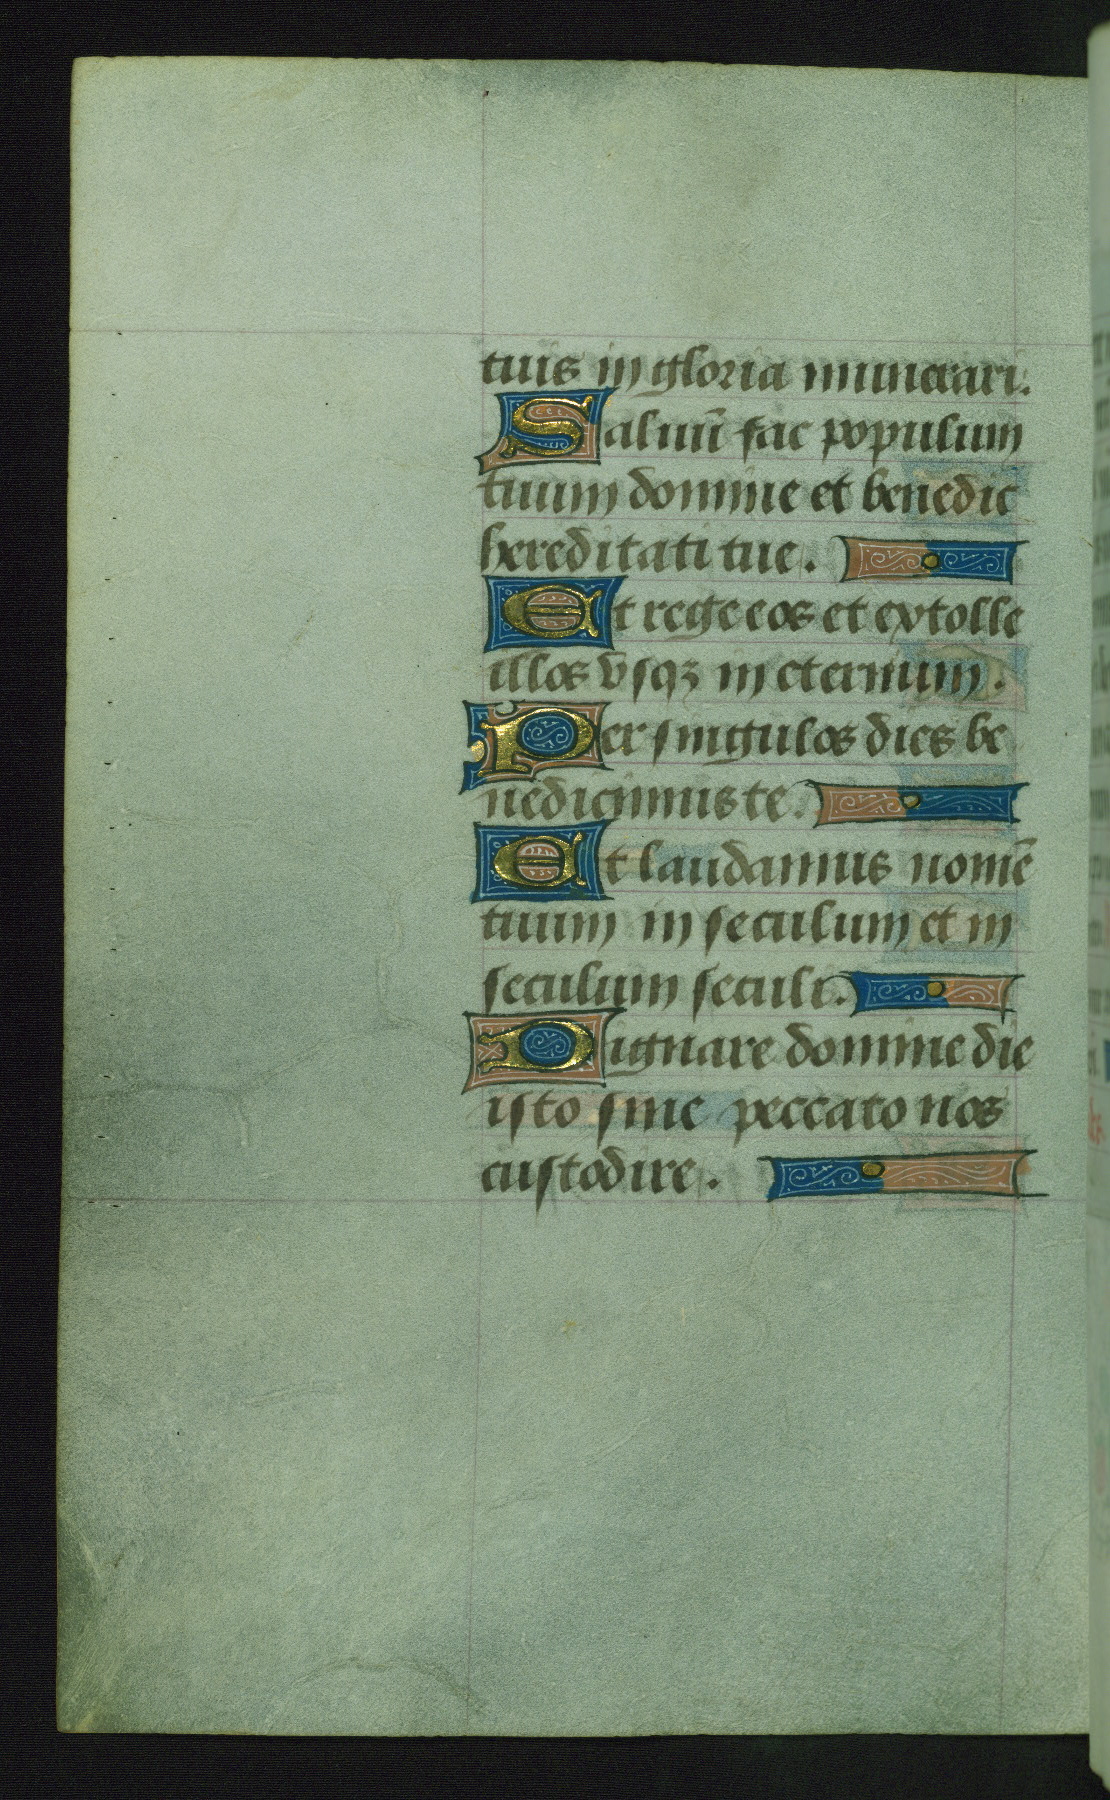 tuis in gloria munerari.
Saluū fac populum
tuum domine et benedic
hereditati tue.
Et rege eos et extolle
illos vsqꝫ in eternum.
Per singulos dies be
nedicimus te.
Et laudamus nomē
tuum in seculum et in
seculum seculi.
Dignare domine die
isto sine peccato nos
custodire.